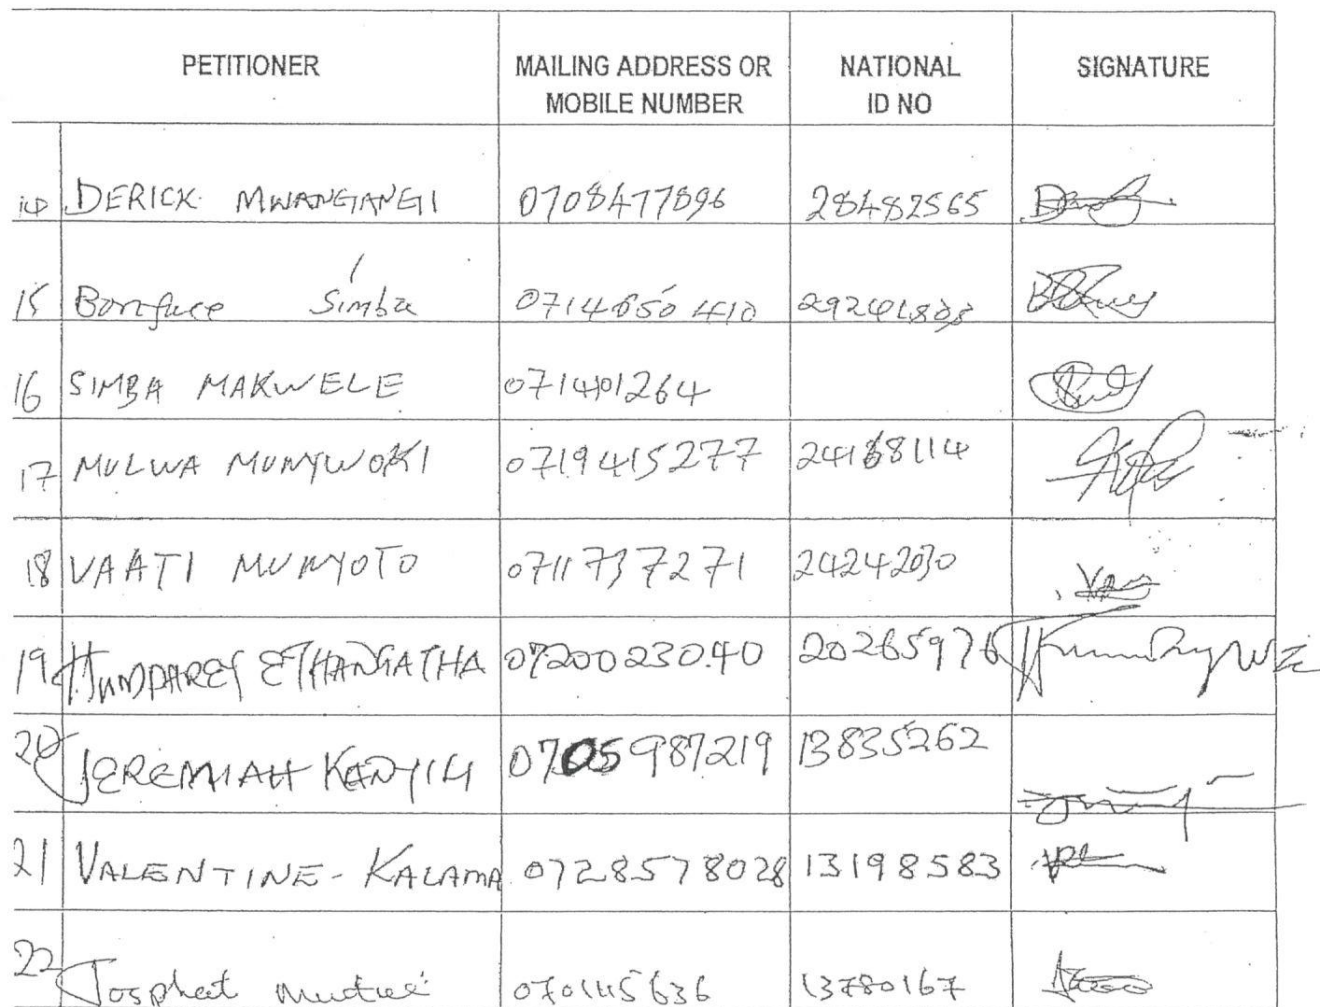 PETITIONER MAILING ADDRESS OR MOBILE NUMBER NATIONAL ID NO SIGNATURE
14 DERICK MWANGANGI 0708477896 28482565
15 Boniface Simba 0714650410
16 SIMBA MAKWELE 071401264
17 MULWA MUNYWOKI 0719415277 24168114
18 VAATI MUNYOTO 0711737271 24242030
19 HUMPHAREY E THANGATHA 0720023040 20265976
20 JEREMIAH KANYILI 0705987219 13835262
21 VALENTINE - KALAMA 0728578028 13198583
22 Josphat Mutua 0701145636 13780167